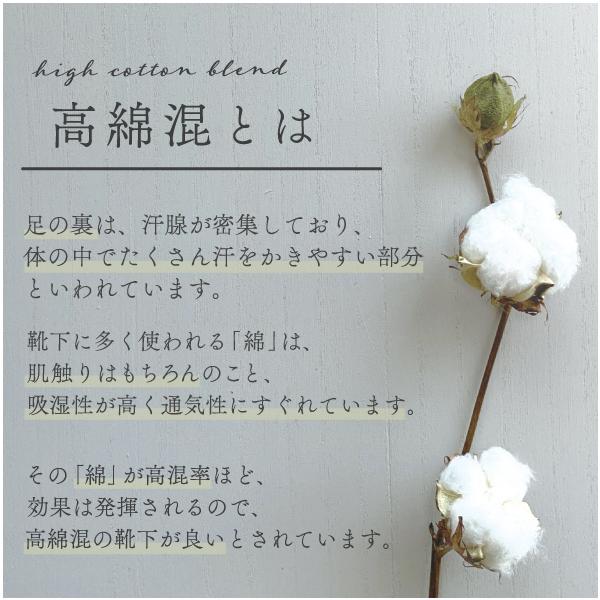 high cotton blend
高綿混とは
足の裏は、汗腺が密集しており、
体の中でたくさん汗をかきやすい部分
といわれています。
靴下に多く使われる「綿」は、
肌触りはもちろんのこと、
吸湿性が高く通気性にすぐれています。
その「綿」が高混率ほど、
効果は発揮されるので、
高綿混の靴下が良いとされています。